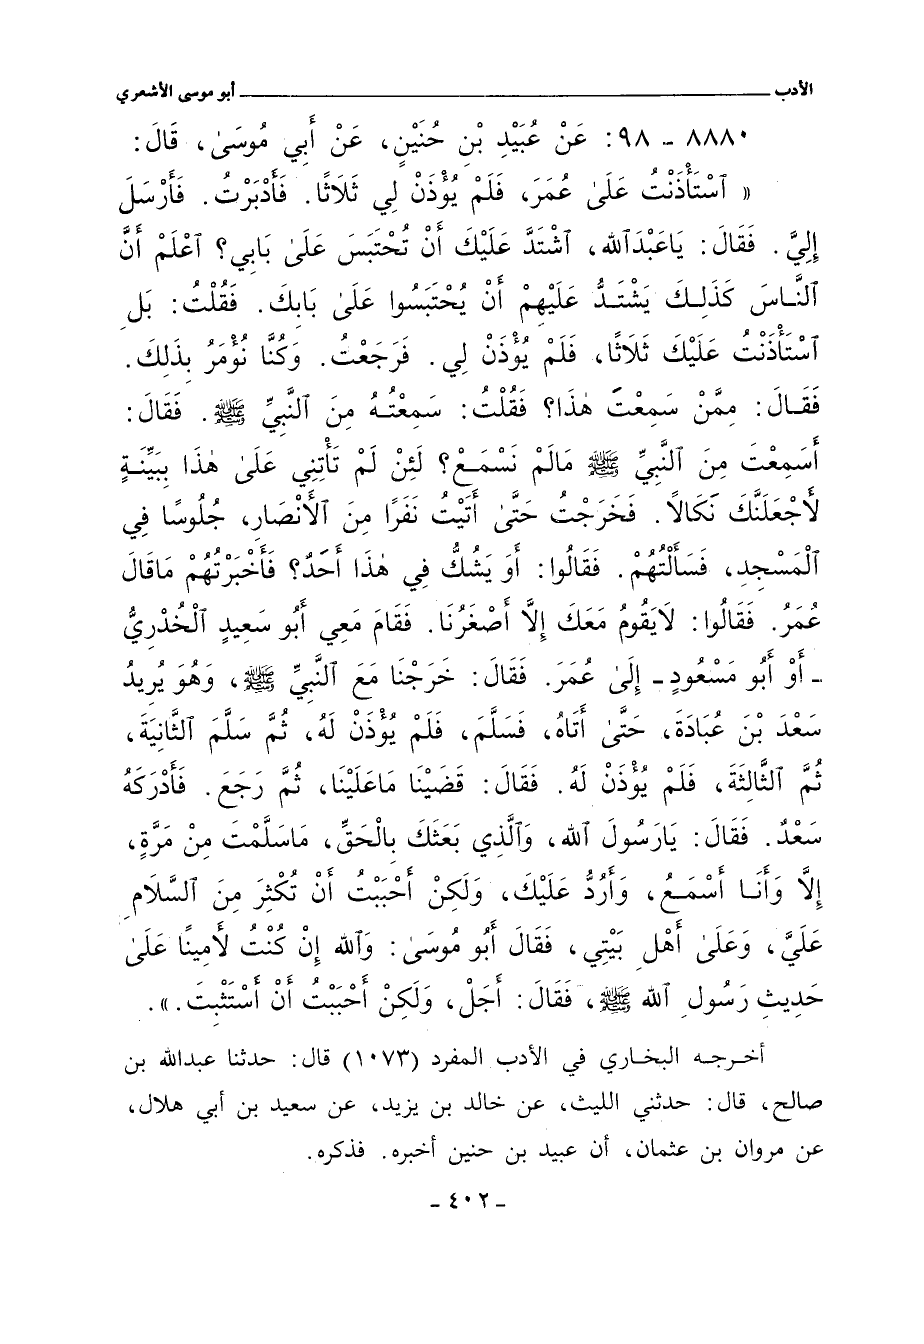 الأدب ــــــــــــــــــــ أبو موسى الأشعري
٨٨٨٠ - ٩٨: عَنْ عُبَيْدِ بْنِ حُنَيْنٍ، عَنْ أَبِي مُوسَىٰ، قَالَ:
« ٱسْتَأْذَنْتُ عَلَىٰ عُمَرَ، فَلَمْ يُؤْذَنْ لِي ثَلَاثًا. فَأَدْبَرْتُ. فَأَرْسَلَ
إِلَيَّ. فَقَالَ: يَاعَبْدَٱلله، ٱشْتَدَّ عَلَيْكَ أَنْ تُحْتَبَسَ عَلَىٰ بَابِي؟ ٱعْلَمْ أَنَّ
ٱلنَّاسَ كَذَلِكَ يَشْتَدُّ عَلَيْهِمْ أَنْ يُحْتَبَسُوا عَلَىٰ بَابِكَ. فَقُلْتُ: بَلِ
ٱسْتَأْذَنْتُ عَلَيْكَ ثَلَاثًا، فَلَمْ يُؤْذَنْ لِي. فَرَجَعْتُ. وَكُنَّا نُؤْمَرُ بِذَلِكَ.
فَقَالَ: مِمَّنْ سَمِعْتَ هٰذَا؟ فَقُلْتُ: سَمِعْتُهُ مِنَ ٱلنَّبِيِّ ﷺ. فَقَالَ:
أَسَمِعْتَ مِنَ ٱلنَّبِيِّ ﷺ مَالَمْ نَسْمَعْ؟ لَئِنْ لَمْ تَأْتِنِي عَلَىٰ هٰذَا بِبَيِّنَةٍ
لأَجْعَلَنَّكَ نَكَالاً. فَخَرَجْتُ حَتَّىٰ أَتَيْتُ نَفَرًا مِنَ ٱلأَنْصَارِ، جُلُوسًا فِي
ٱلْمَسْجِدِ، فَسَأَلْتُهُمْ. فَقَالُوا: أَوَ يَشُكُّ فِي هٰذَا أَحَدٌ؟ فَأَخْبَرْتُهُمْ مَاقَالَ
عُمَرُ. فَقَالُوا: لَايَقُومُ مَعَكَ إِلَّا أَصْغَرُنَا. فَقَامَ مَعِي أَبُو سَعِيدٍ ٱلْخُدْرِيُّ
- أَوْ أَبُو مَسْعُودٍ - إِلَىٰ عُمَرَ. فَقَالَ: خَرَجْنَا مَعَ ٱلنَّبِيِّ ﷺ، وَهُوَ يُرِيدُ
سَعْدَ بْنَ عُبَادَةَ، حَتَّىٰ أَتَاهُ، فَسَلَّمَ، فَلَمْ يُؤْذَنْ لَهُ، ثُمَّ سَلَّمَ ٱلثَّانِيَةَ،
ثُمَّ ٱلثَّالِثَةَ، فَلَمْ يُؤْذَنْ لَهُ. فَقَالَ: قَضَيْنَا مَاعَلَيْنَا، ثُمَّ رَجَعَ. فَأَدْرَكَهُ
سَعْدٌ. فَقَالَ: يَارَسُولَ ٱلله، وَٱلَّذِي بَعَثَكَ بِالْحَقِّ، مَاسَلَّمْتَ مِنْ مَرَّةٍ،
إِلَّا وَأَنَا أَسْمَعُ، وَأَرُدُّ عَلَيْكَ، وَلَكِنْ أَحْبَبْتُ أَنْ تُكْثِرَ مِنَ ٱلسَّلَامِ
عَلَيَّ، وَعَلَىٰ أَهْلِ بَيْتِي، فَقَالَ أَبُو مُوسَىٰ: وَٱلله إِنْ كُنْتُ لأَمِينًا عَلَىٰ
حَدِيثِ رَسُولِ ٱلله ﷺ، فَقَالَ: أَجَلْ، وَلَكِنْ أَحْبَبْتُ أَنْ أَسْتَثْبِتَ.».
أخرجه البخاري في الأدب المفرد (١٠٧٣) قال: حدثنا عبدالله بن
صالح، قال: حدثني الليث، عن خالد بن يزيد، عن سعيد بن أبي هلال،
عن مروان بن عثمان، أن عبيد بن حنين أخبره. فذكره.
- ٤٠٢ -